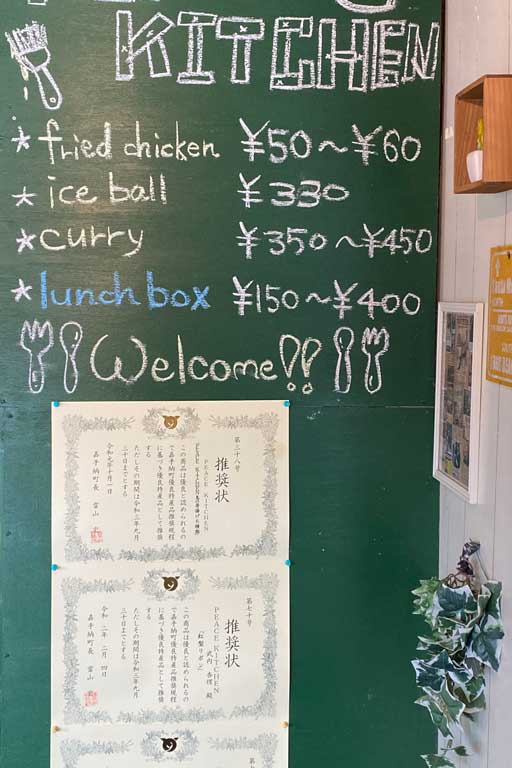 KITCHEN
* fried chicken ¥50～¥60
* ice ball ¥330
* curry ¥350～¥450
* lunch box ¥150～¥400
Welcome!!
第三十八号
推奨状
PEACE KITCHEN
この商品は優良と認められるの
で嘉手納町優良特産品推奨規程
に基づき優良特産品として推奨
する
ただしその期間は令和三年九月
三十日までとする
令和元年十月一日
嘉手納町長 當山
第七十号
推奨状
PEACE KITCHEN
この商品は優良と認められるの
で嘉手納町優良特産品推奨規程
に基づき優良特産品として推奨
する
ただしその期間は令和三年九月
三十日までとする
令和二年二月四日
嘉手納町長 當山